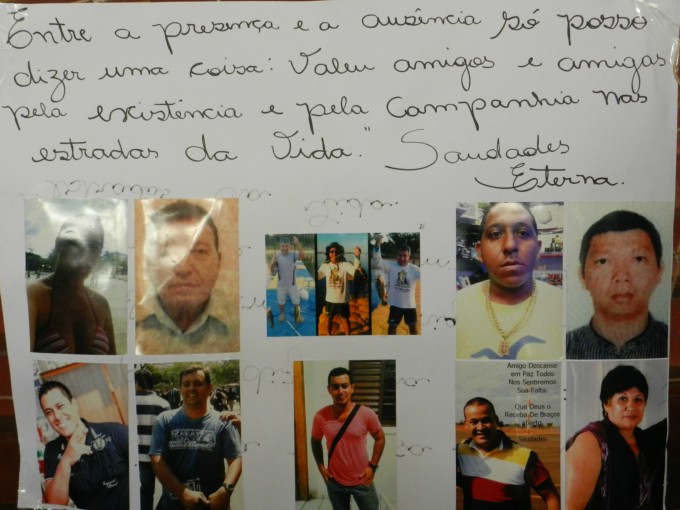 Entre a presença e a ausência só posso
dizer uma coisa: Valeu amigos e amigas
pela existência e pela Companhia nas
estradas da Vida." Saudades
Eterna.
Amigo Descanse
em Paz Todos
Nos Sentiremos
Sua Falta.
Que Deus o
Receba De Braços
Aberto
Saudades